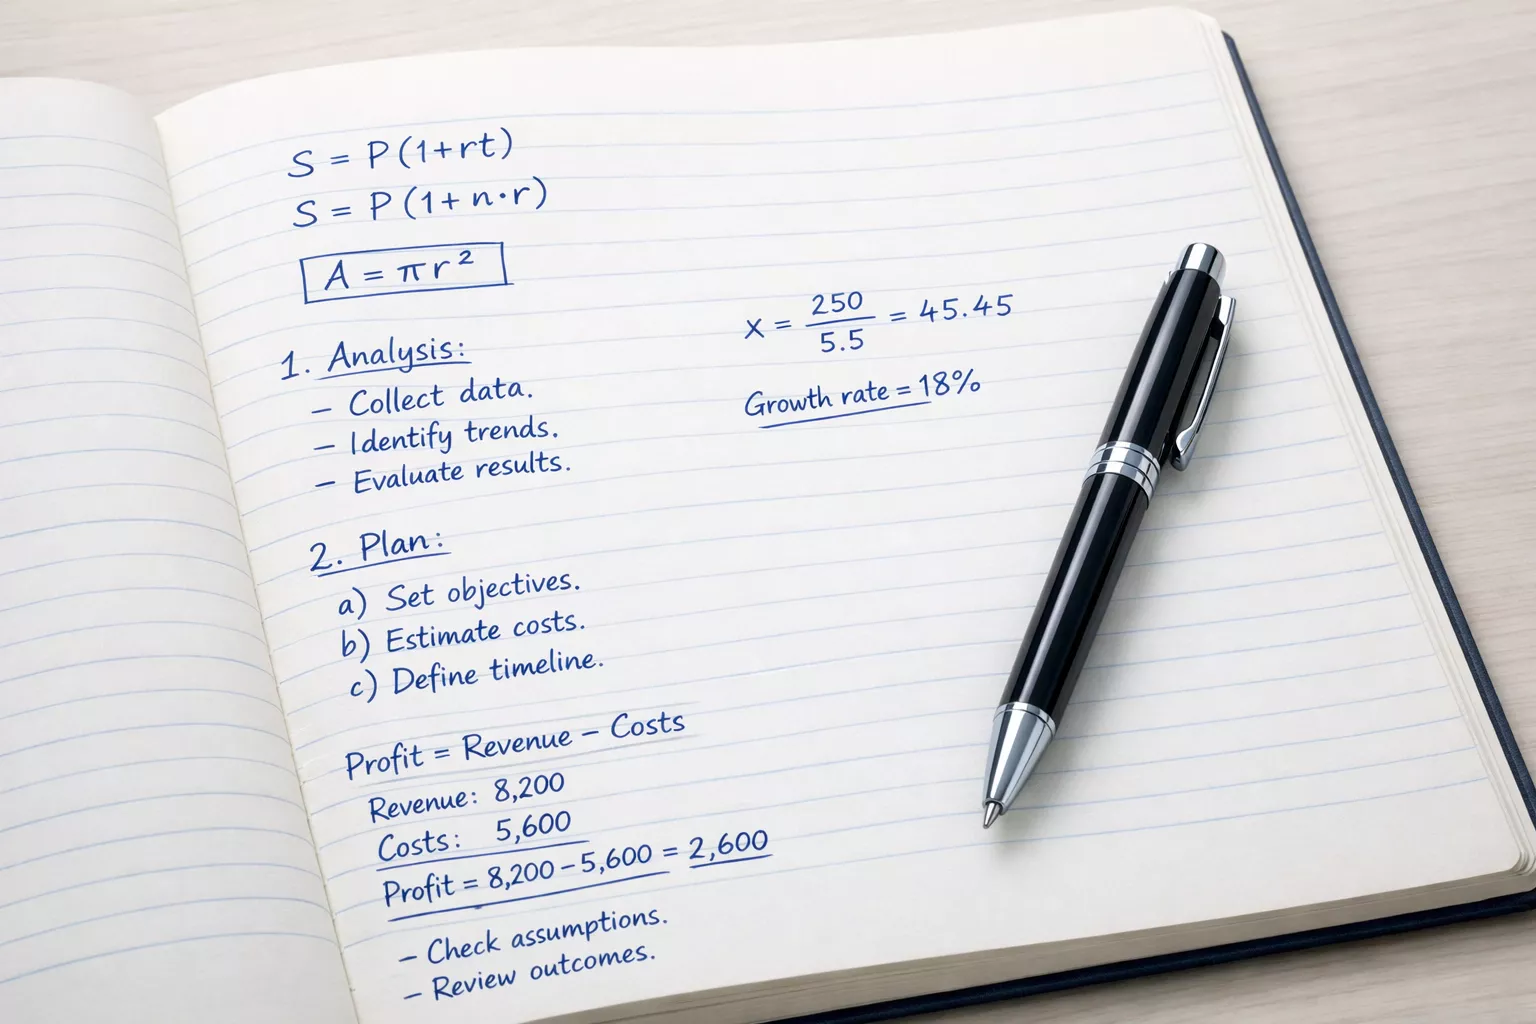 S = P(1+rt)
S = P(1+n·r)
A = πr²
1. Analysis:
– Collect data.
– Identify trends.
– Evaluate results.
x = 250/5.5 = 45.45
Growth rate = 18%
2. Plan:
a) Set objectives.
b) Estimate costs.
c) Define timeline.
Profit = Revenue – Costs
Revenue: 8,200
Costs: 5,600
Profit = 8,200 – 5,600 = 2,600
– Check assumptions.
– Review outcomes.